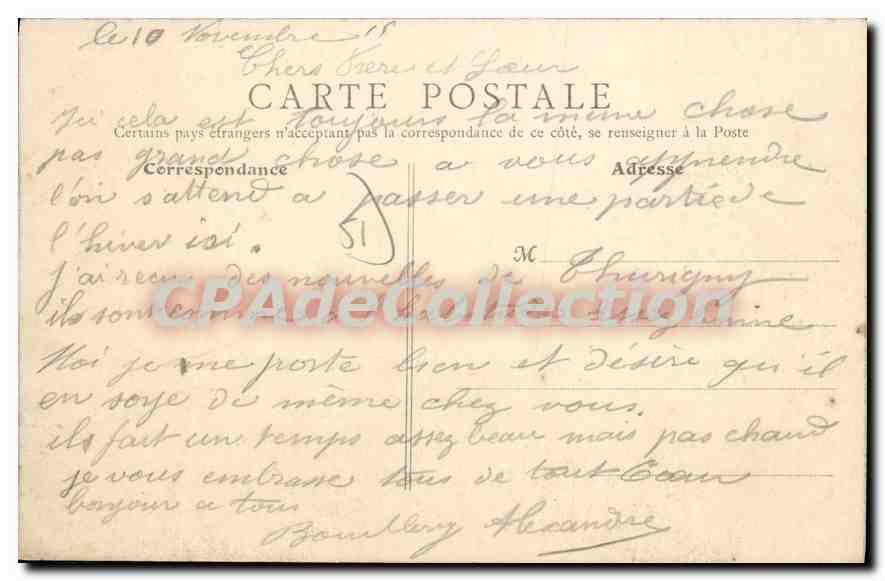 le 10 Novembre 15
Chers Frere et Sœur
CARTE POSTALE
Ici cela est toujours la même chose
Certains pays étrangers n'acceptant pas la correspondance de ce côté, se renseigner à la Poste
pas grand chose a vous apprendre
Correspondance
Adresse
l'on s'attend a passer une partie de
51
l'hiver ici.
M
j'ai recu des nouvelles de Thurigny
CPAdeCollection.com
ils sont
Moi je me porte bien et désire qu'il
en soye de même chez vous.
ils fait un temps assez beau mais pas chaud
je vous embrasse tous de tout Cœur
bonjour a tous
Alexandre